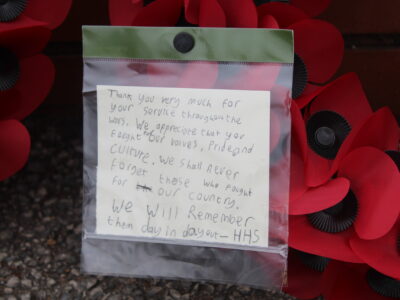 Thank you very much for
your service throughout the
wars. We appreciate that you
fought for our lives, Pride and
culture. We shall never
forget those who fought
for our country.
We Will Remember
them day in day out - HHS